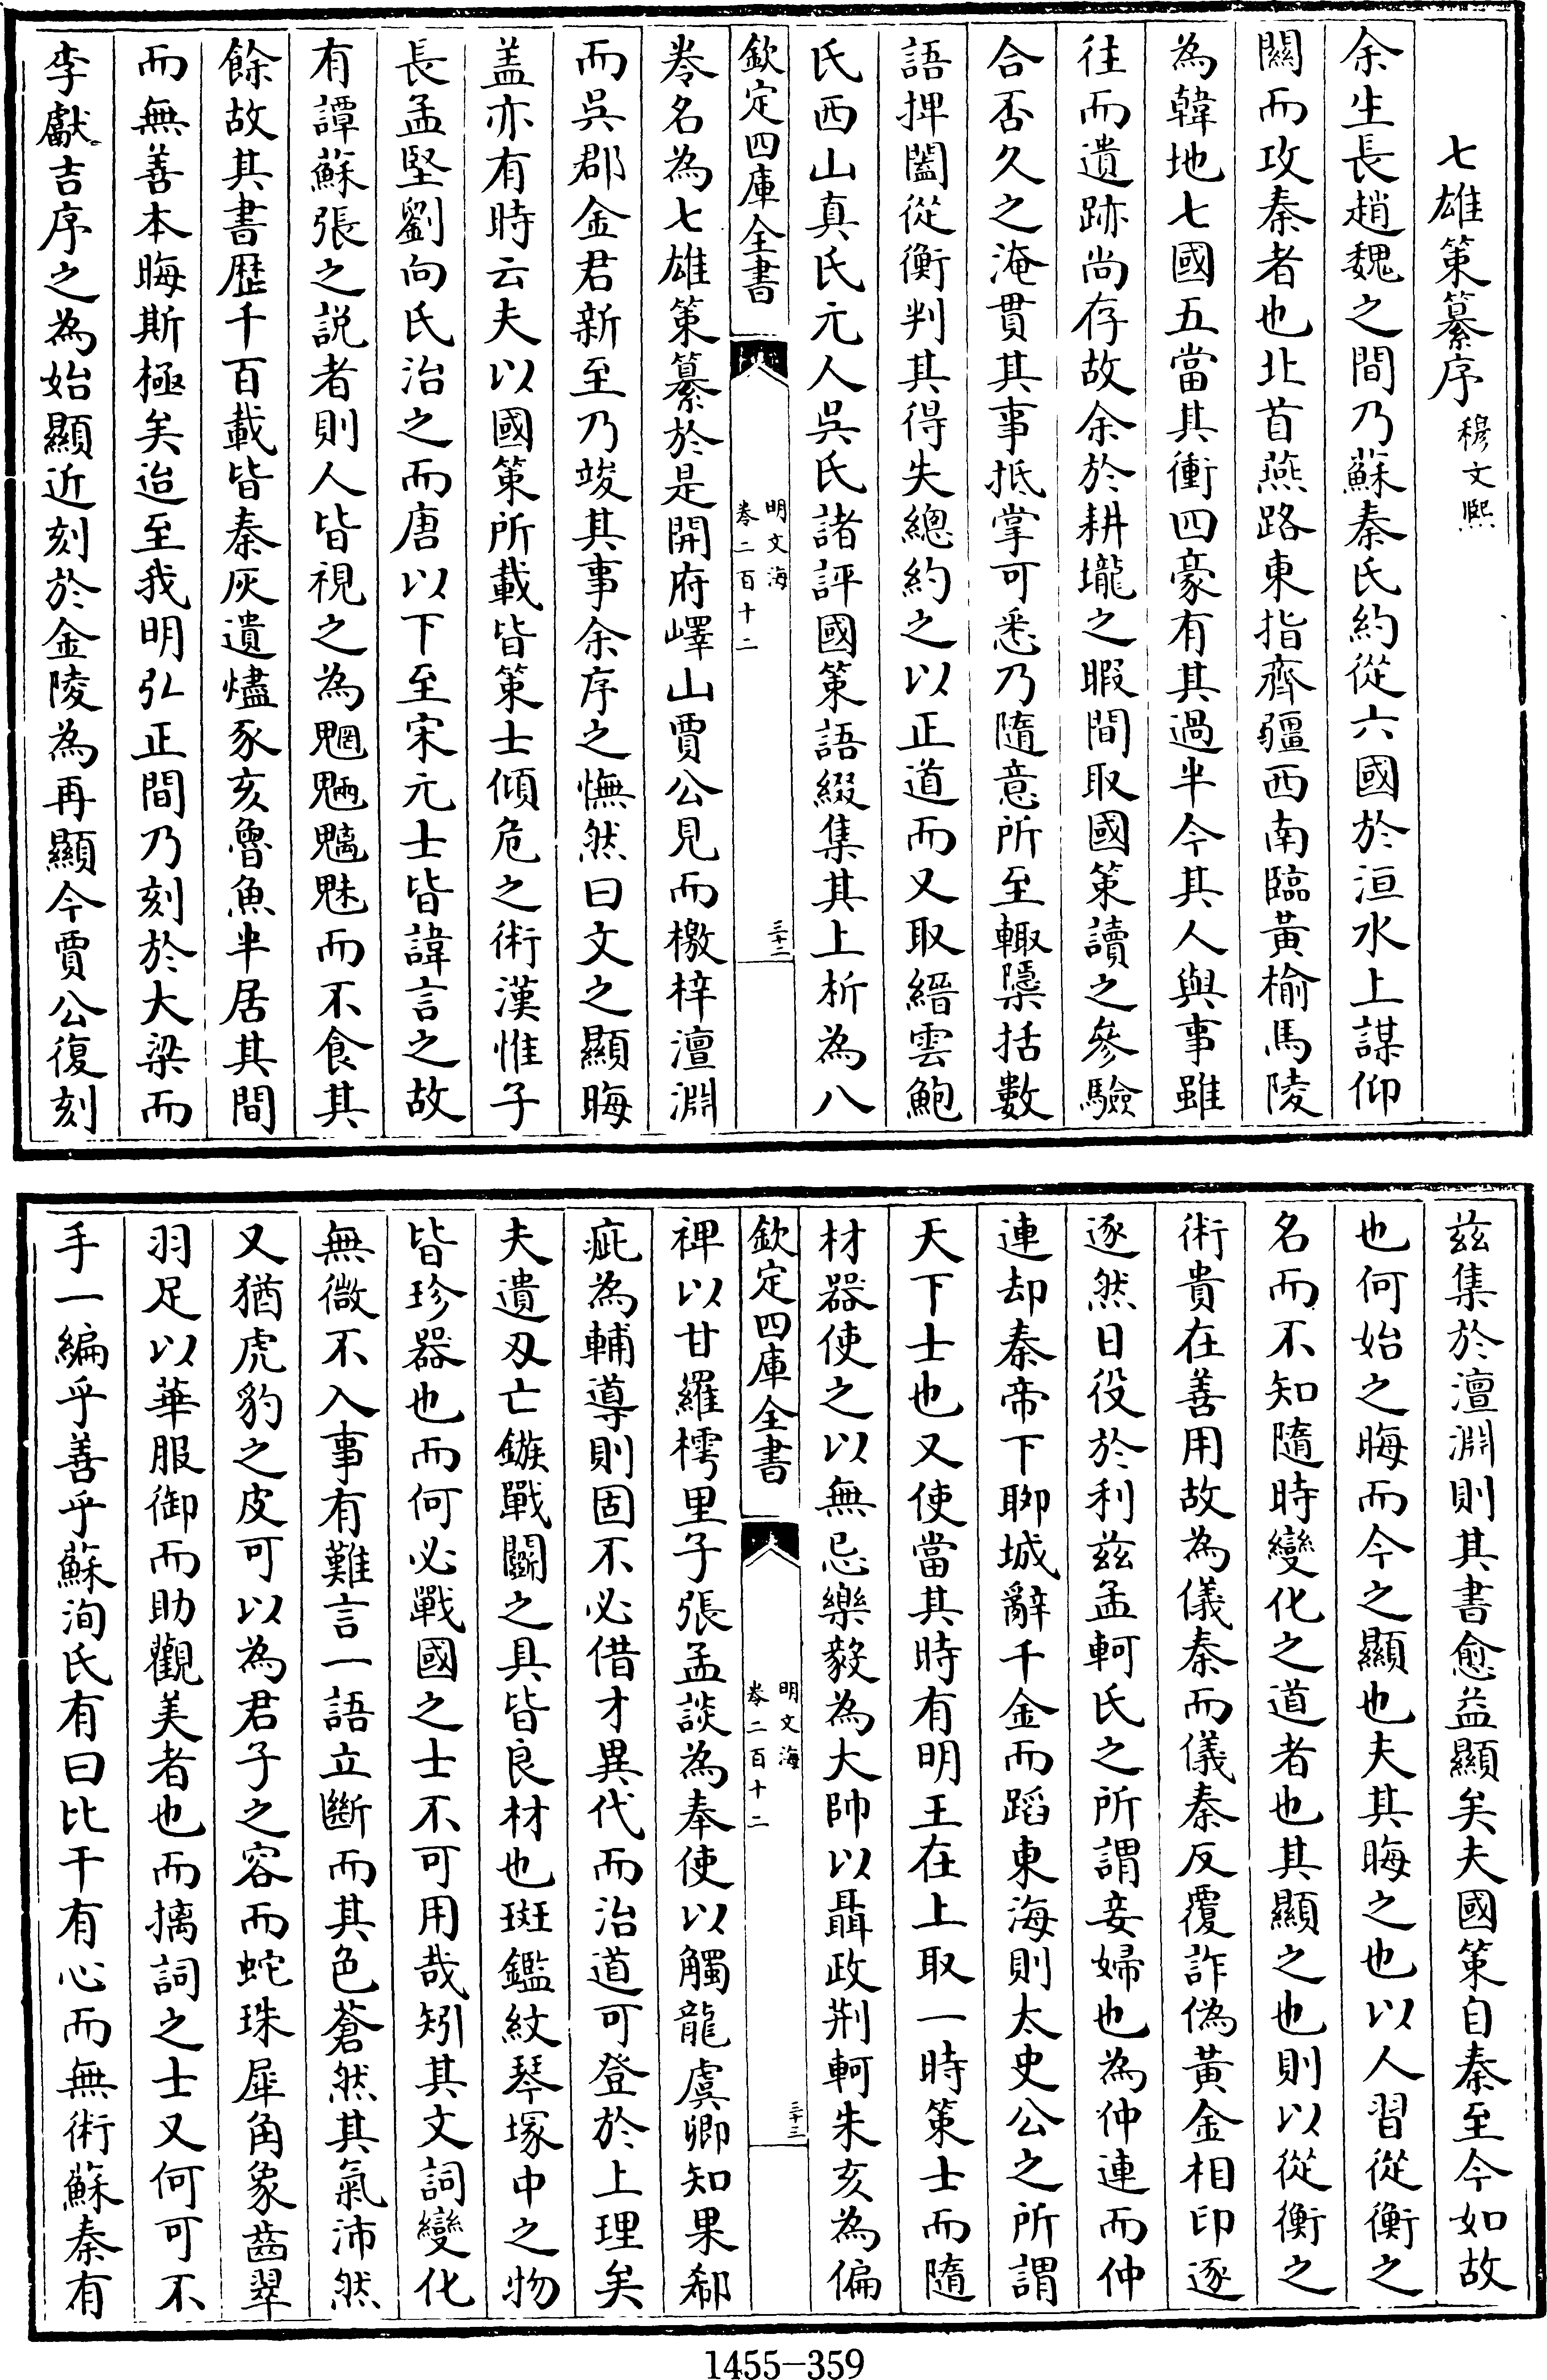 七雄策纂序 穆文熙
余生長趙魏之間乃蘇秦氏約從六國於洹水上謀仰
關而攻秦者也北首燕路東指齊疆西南臨黃榆馬陵
為韓地七國五當其衝四豪有其過半今其人與事雖
往而遺跡尚存故余於耕壠之暇間取國策讀之參驗
合否久之淹貫其事抵掌可悉乃隨意所至輙檃括數
語捭闔從衡判其得失總約之以正道而又取縉雲鮑
氏西山真氏元人吳氏諸評國策語綴集其上析為八
欽定四庫全書
明文海
卷二百十二
三十二
卷名為七雄策纂於是開府嶧山賈公見而檄梓澶淵
而吳郡金君新至乃竣其事余序之憮然曰文之顯晦
盖亦有時云夫以國策所載皆策士傾危之術漢惟子
長孟堅劉向氏治之而唐以下至宋元士皆諱言之故
有譚蘇張之説者則人皆視之為魍魎魑魅而不食其
餘故其書歴千百載皆秦灰遺燼豕亥魯魚半居其間
而無善本晦斯極矣迨至我明弘正間乃刻於大梁而
李獻吉序之為始顯近刻於金陵為再顯今賈公復刻
兹集於澶淵則其書愈益顯矣夫國策自秦至今如故
也何始之晦而今之顯也夫其晦之也以人習從衡之
名而不知隨時變化之道者也其顯之也則以從衡之
術貴在善用故為儀秦而儀秦反覆詐偽黃金相印逐
逐然日役於利兹孟軻氏之所謂妾婦也為仲連而仲
連却秦帝下聊城辭千金而蹈東海則太史公之所謂
天下士也又使當其時有明王在上取一時策士而隨
材器使之以無忌樂毅為大帥以聶政荆軻朱亥為偏
欽定四庫全書
明文海
卷二百十二
三十三
禆以甘羅樗里子張孟談為奉使以觸龍虞卿知果郄
疵為輔導則固不必借才異代而治道可登於上理矣
夫遺刄亡鏃戰鬭之具皆良材也斑鑑紋琴塚中之物
皆珍器也而何必戰國之士不可用哉矧其文詞變化
無微不入事有難言一語立斷而其色蒼然其氣沛然
又猶虎豹之皮可以為君子之容而蛇珠犀角象齒翠
羽足以華服御而助觀美者也而摛詞之士又何可不
手一編乎善乎蘇洵氏有曰比干有心而無術蘇秦有
1455-359